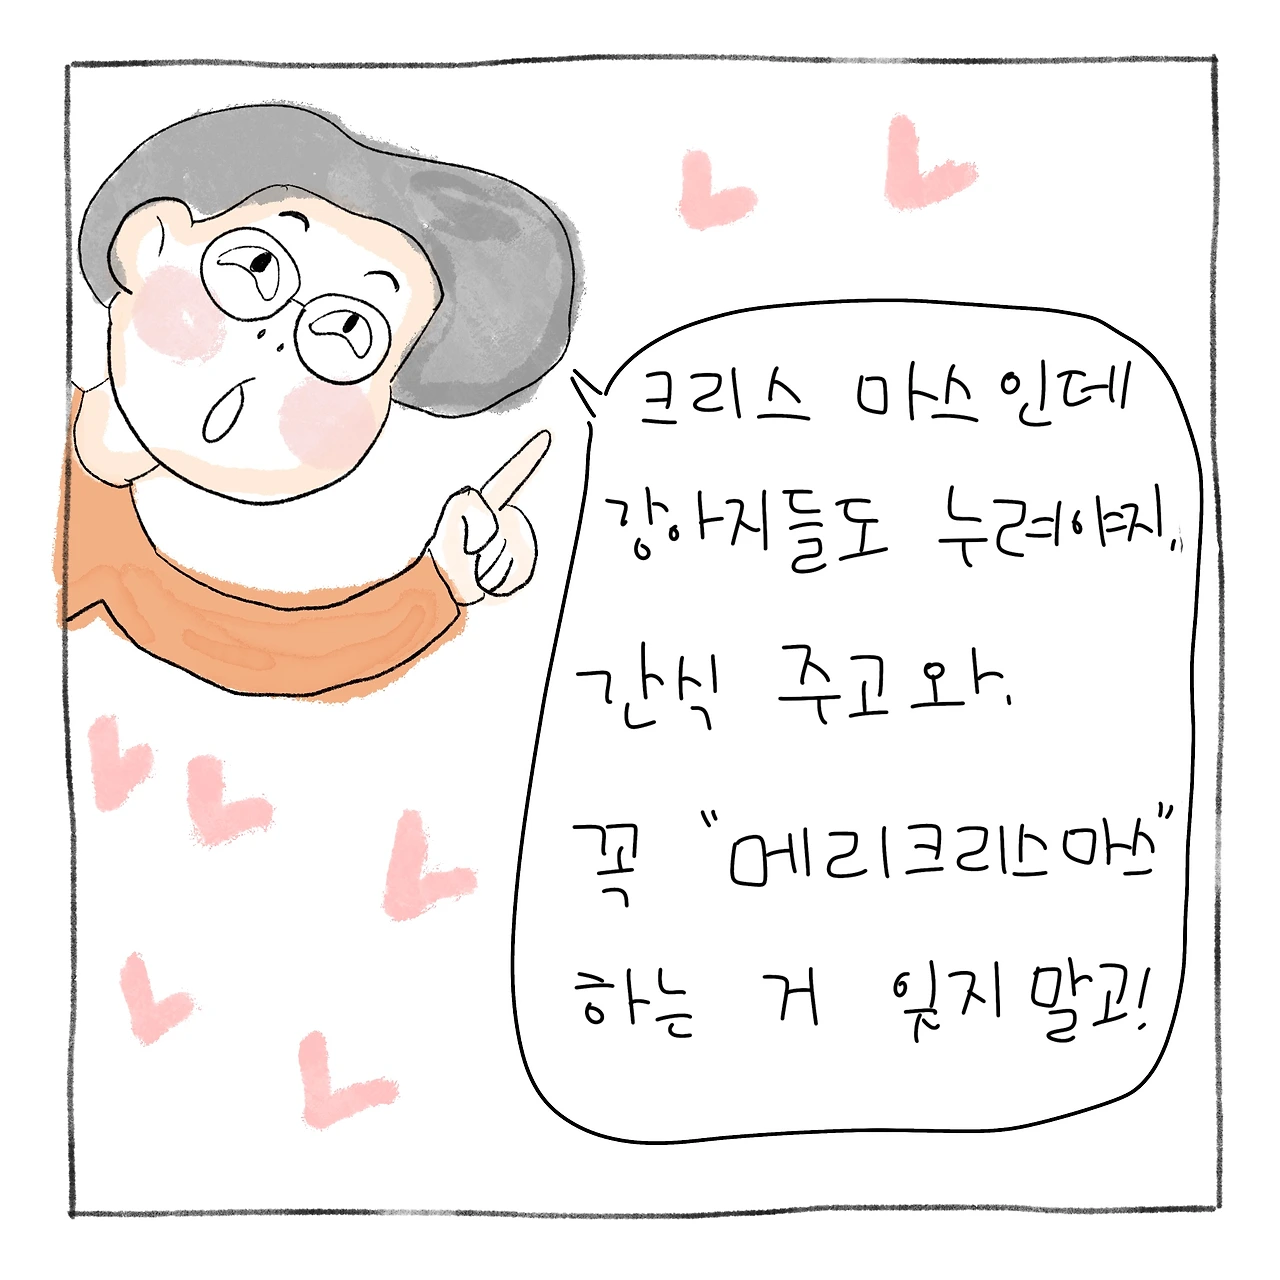 크리스 마스인데
강아지들도 누려야지..
간식 주고와.
꼭 "메리크리스마스"
하는 거 잊지말고!